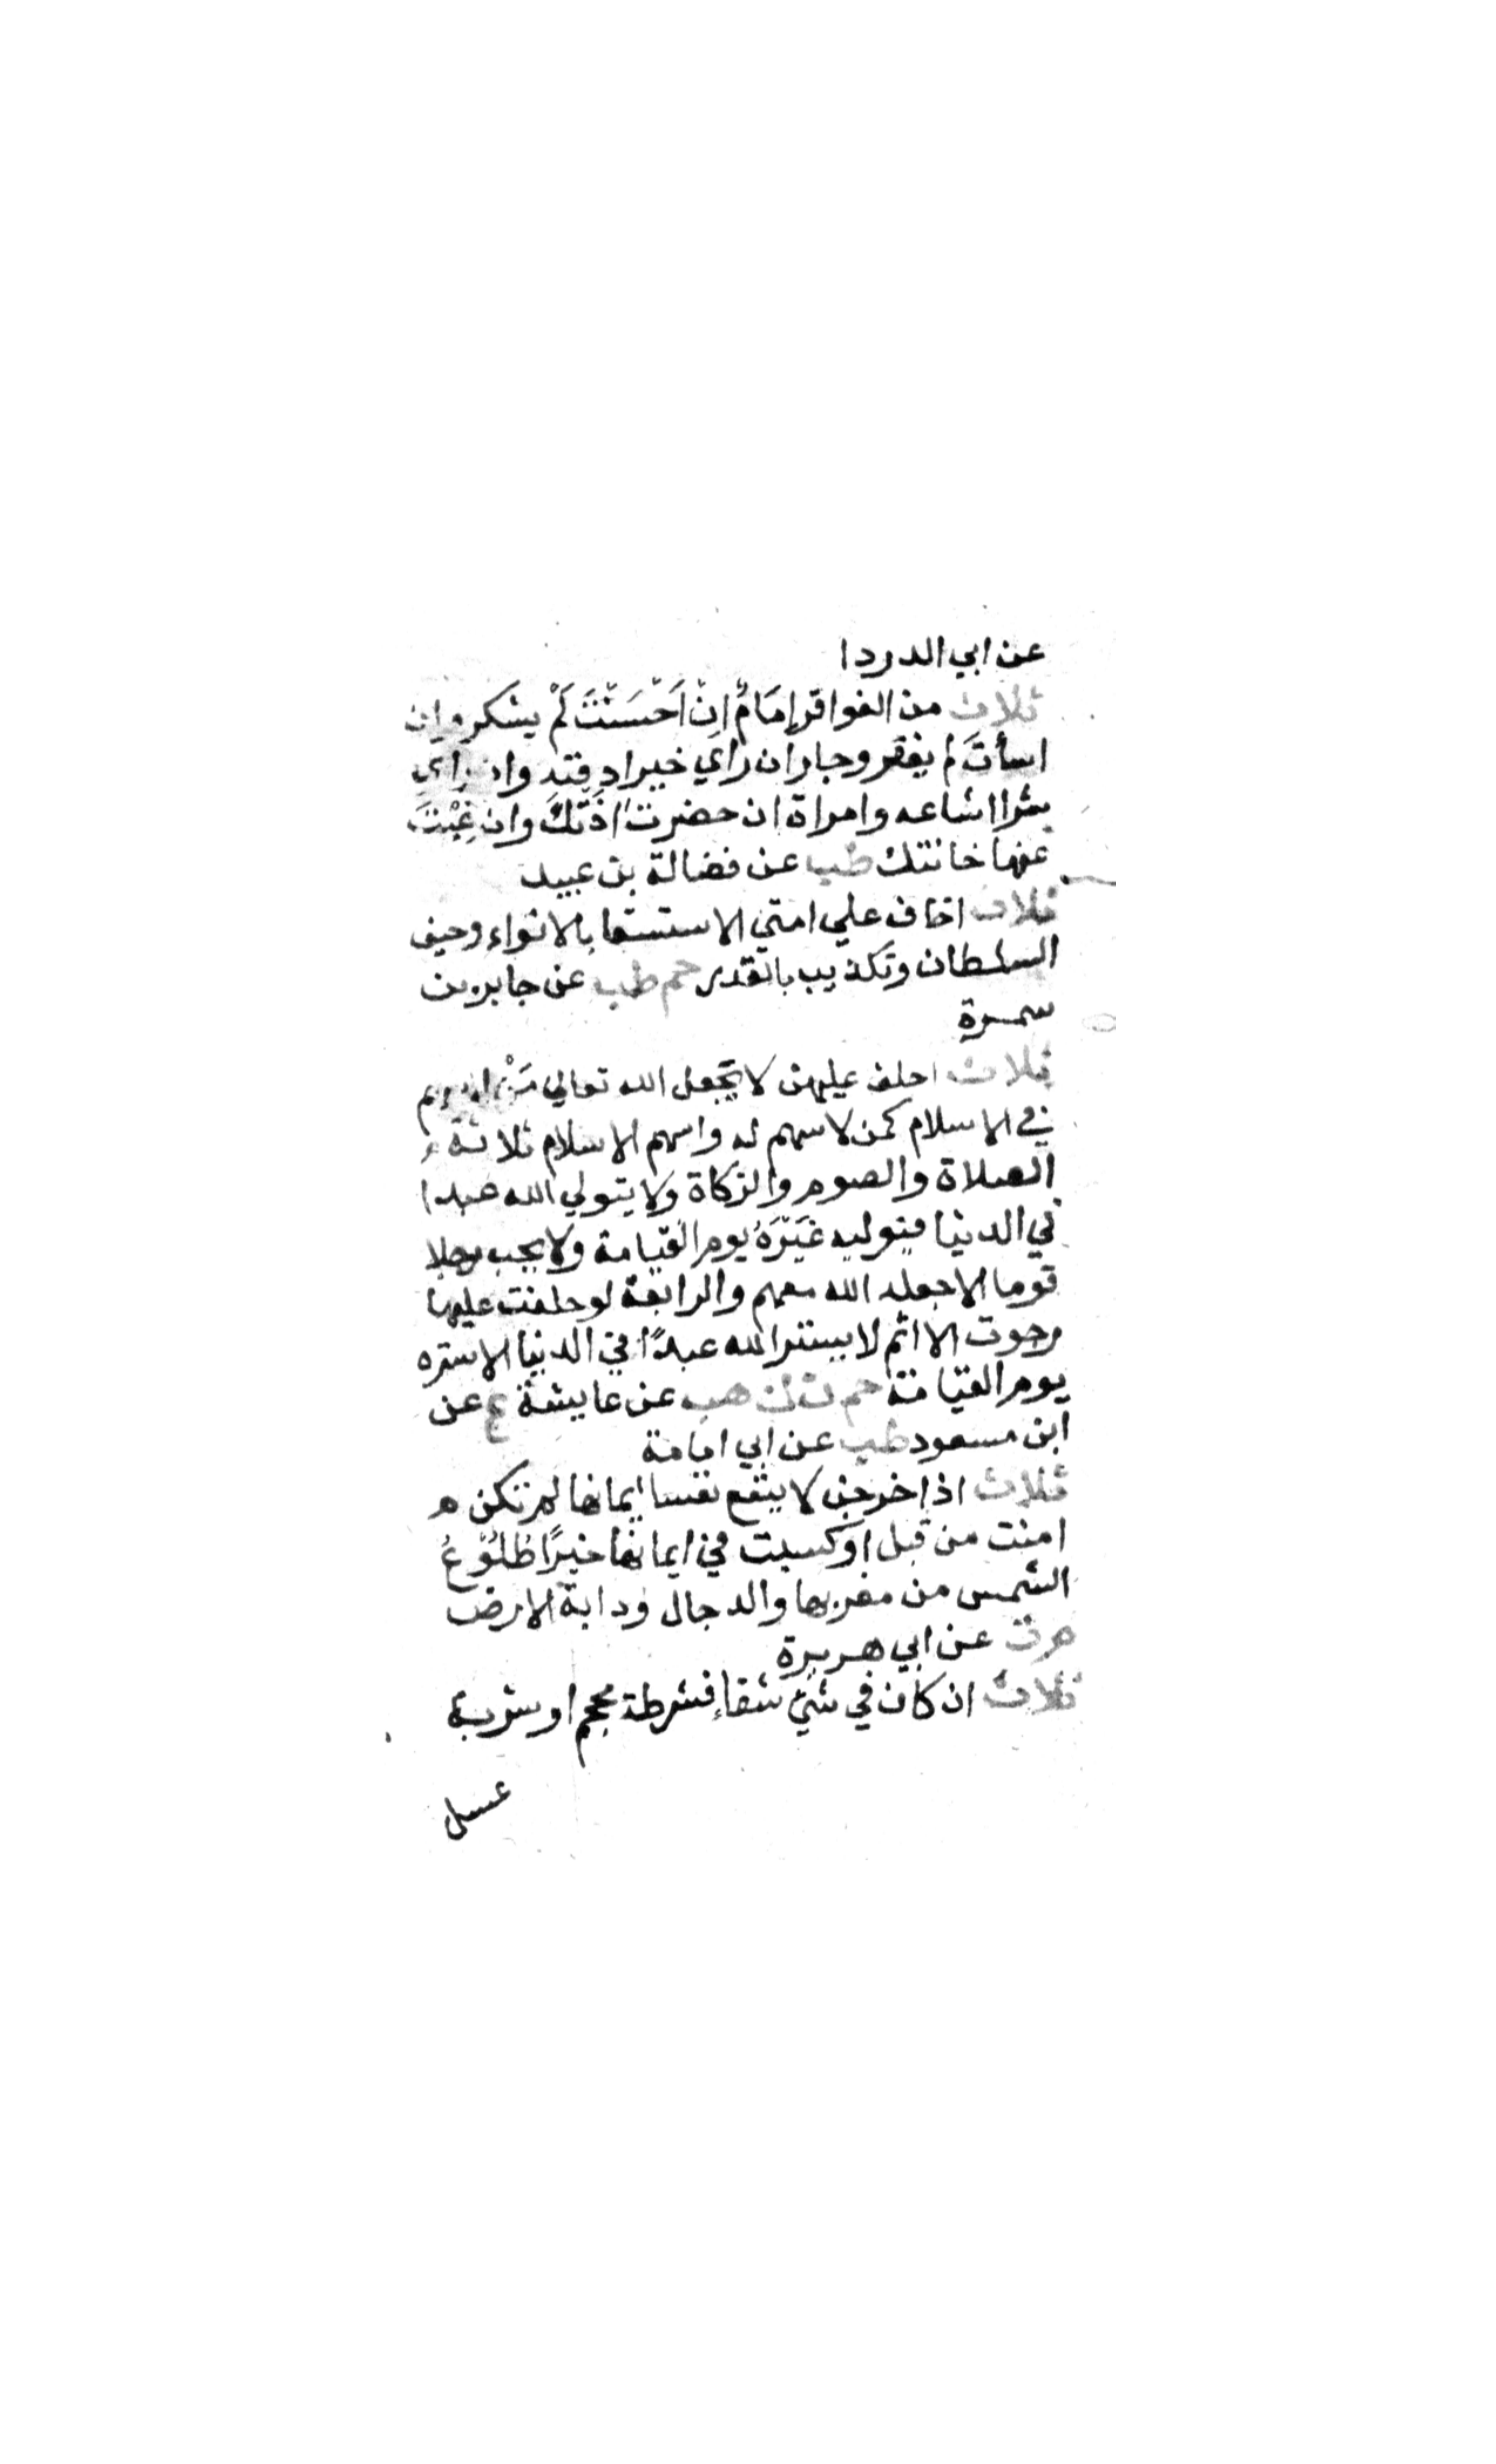 عن ابي الدردا
ثلاث من الفواقر إمَامٌ اِنْ اَحْسَنْتَ لَمْ يشكر وان
اسأتَ لم يغفر وجار ان راي خيرا دفنه وان راي
شرا اشاعه وامراة ان حضرت اذَتكَ وان غِبْتَ
عنها خانتك طب عن فضالة بن عبيد
ثلاث اخاف علي امتي الاستسقا بالانواء وحيف
السلطان وتكذيب بالقدر حم طب عن جابر بن
سمرة
ثلاث احلف عليهن لا يجعل الله تعالي مَنْ له سهم
في الاسلام كمن لا سهم له واسهم الاسلام ثلاثة
الصلاة والصوم والزكاة ولا يتولي الله عبدا
في الدنيا فيوليه غَيْرَهُ يوم القيامة ولا يحب رجلا
قوما الا جعله الله معهم والرابعة لو حلفت عليها
رجوت الا اثم لا يستر الله عبدًا في الدنيا الا ستره
يوم القيامة حم ن ك هب عن عايشة ع عن
ابن مسعود طب عن ابي امامة
ثلاث اذا خرجن لا ينفع نفسا ايمانها لم تكن
امنت من قبل او كسبت في ايمانها خيرًا طُلُوْعُ
الشمس من مغربها والدجال ودابة الارض
م ت عن ابي هريرة
ثلاث ان كان في شئ شفاء فشرطة محجم او شربة
عسل